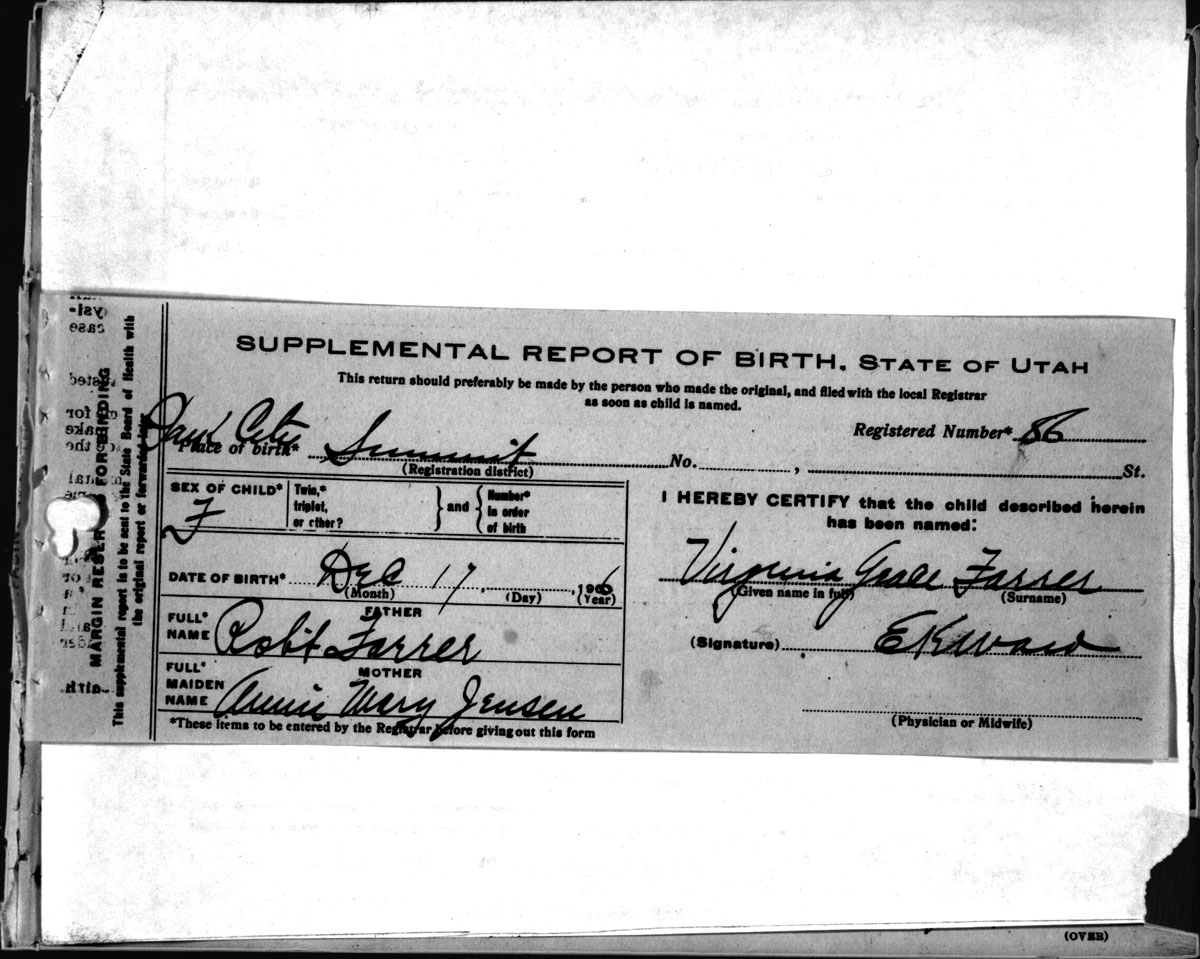 SUPPLEMENTAL REPORT OF BIRTH. STATE OF UTAH
This return should preferably be made by the person who made the original, and filed with the local Registrar
as soon as child is named.
Park City
Registered Number* 86
Place of birth* Summit No. , St.
(Registration district)
SEX OF CHILD* F
Twin,* triplet, or other? } and { Number* in order of birth
DATE OF BIRTH* Dec 17 , 1906
(Month) (Day) (Year)
FATHER
FULL* NAME Robt Farrer
MOTHER
FULL* MAIDEN NAME Annie Mary Jensen
*These items to be entered by the Registrar before giving out this form
I HEREBY CERTIFY that the child described herein
has been named:
Virginia Grace Farrer
(Given name in full) (Surname)
(Signature) E K Ward
(Physician or Midwife)
MARGIN RESERVED FOR BINDING
This supplemental report is to be sent to the State Board of Health with
the original report or forwarded later
(OVER)